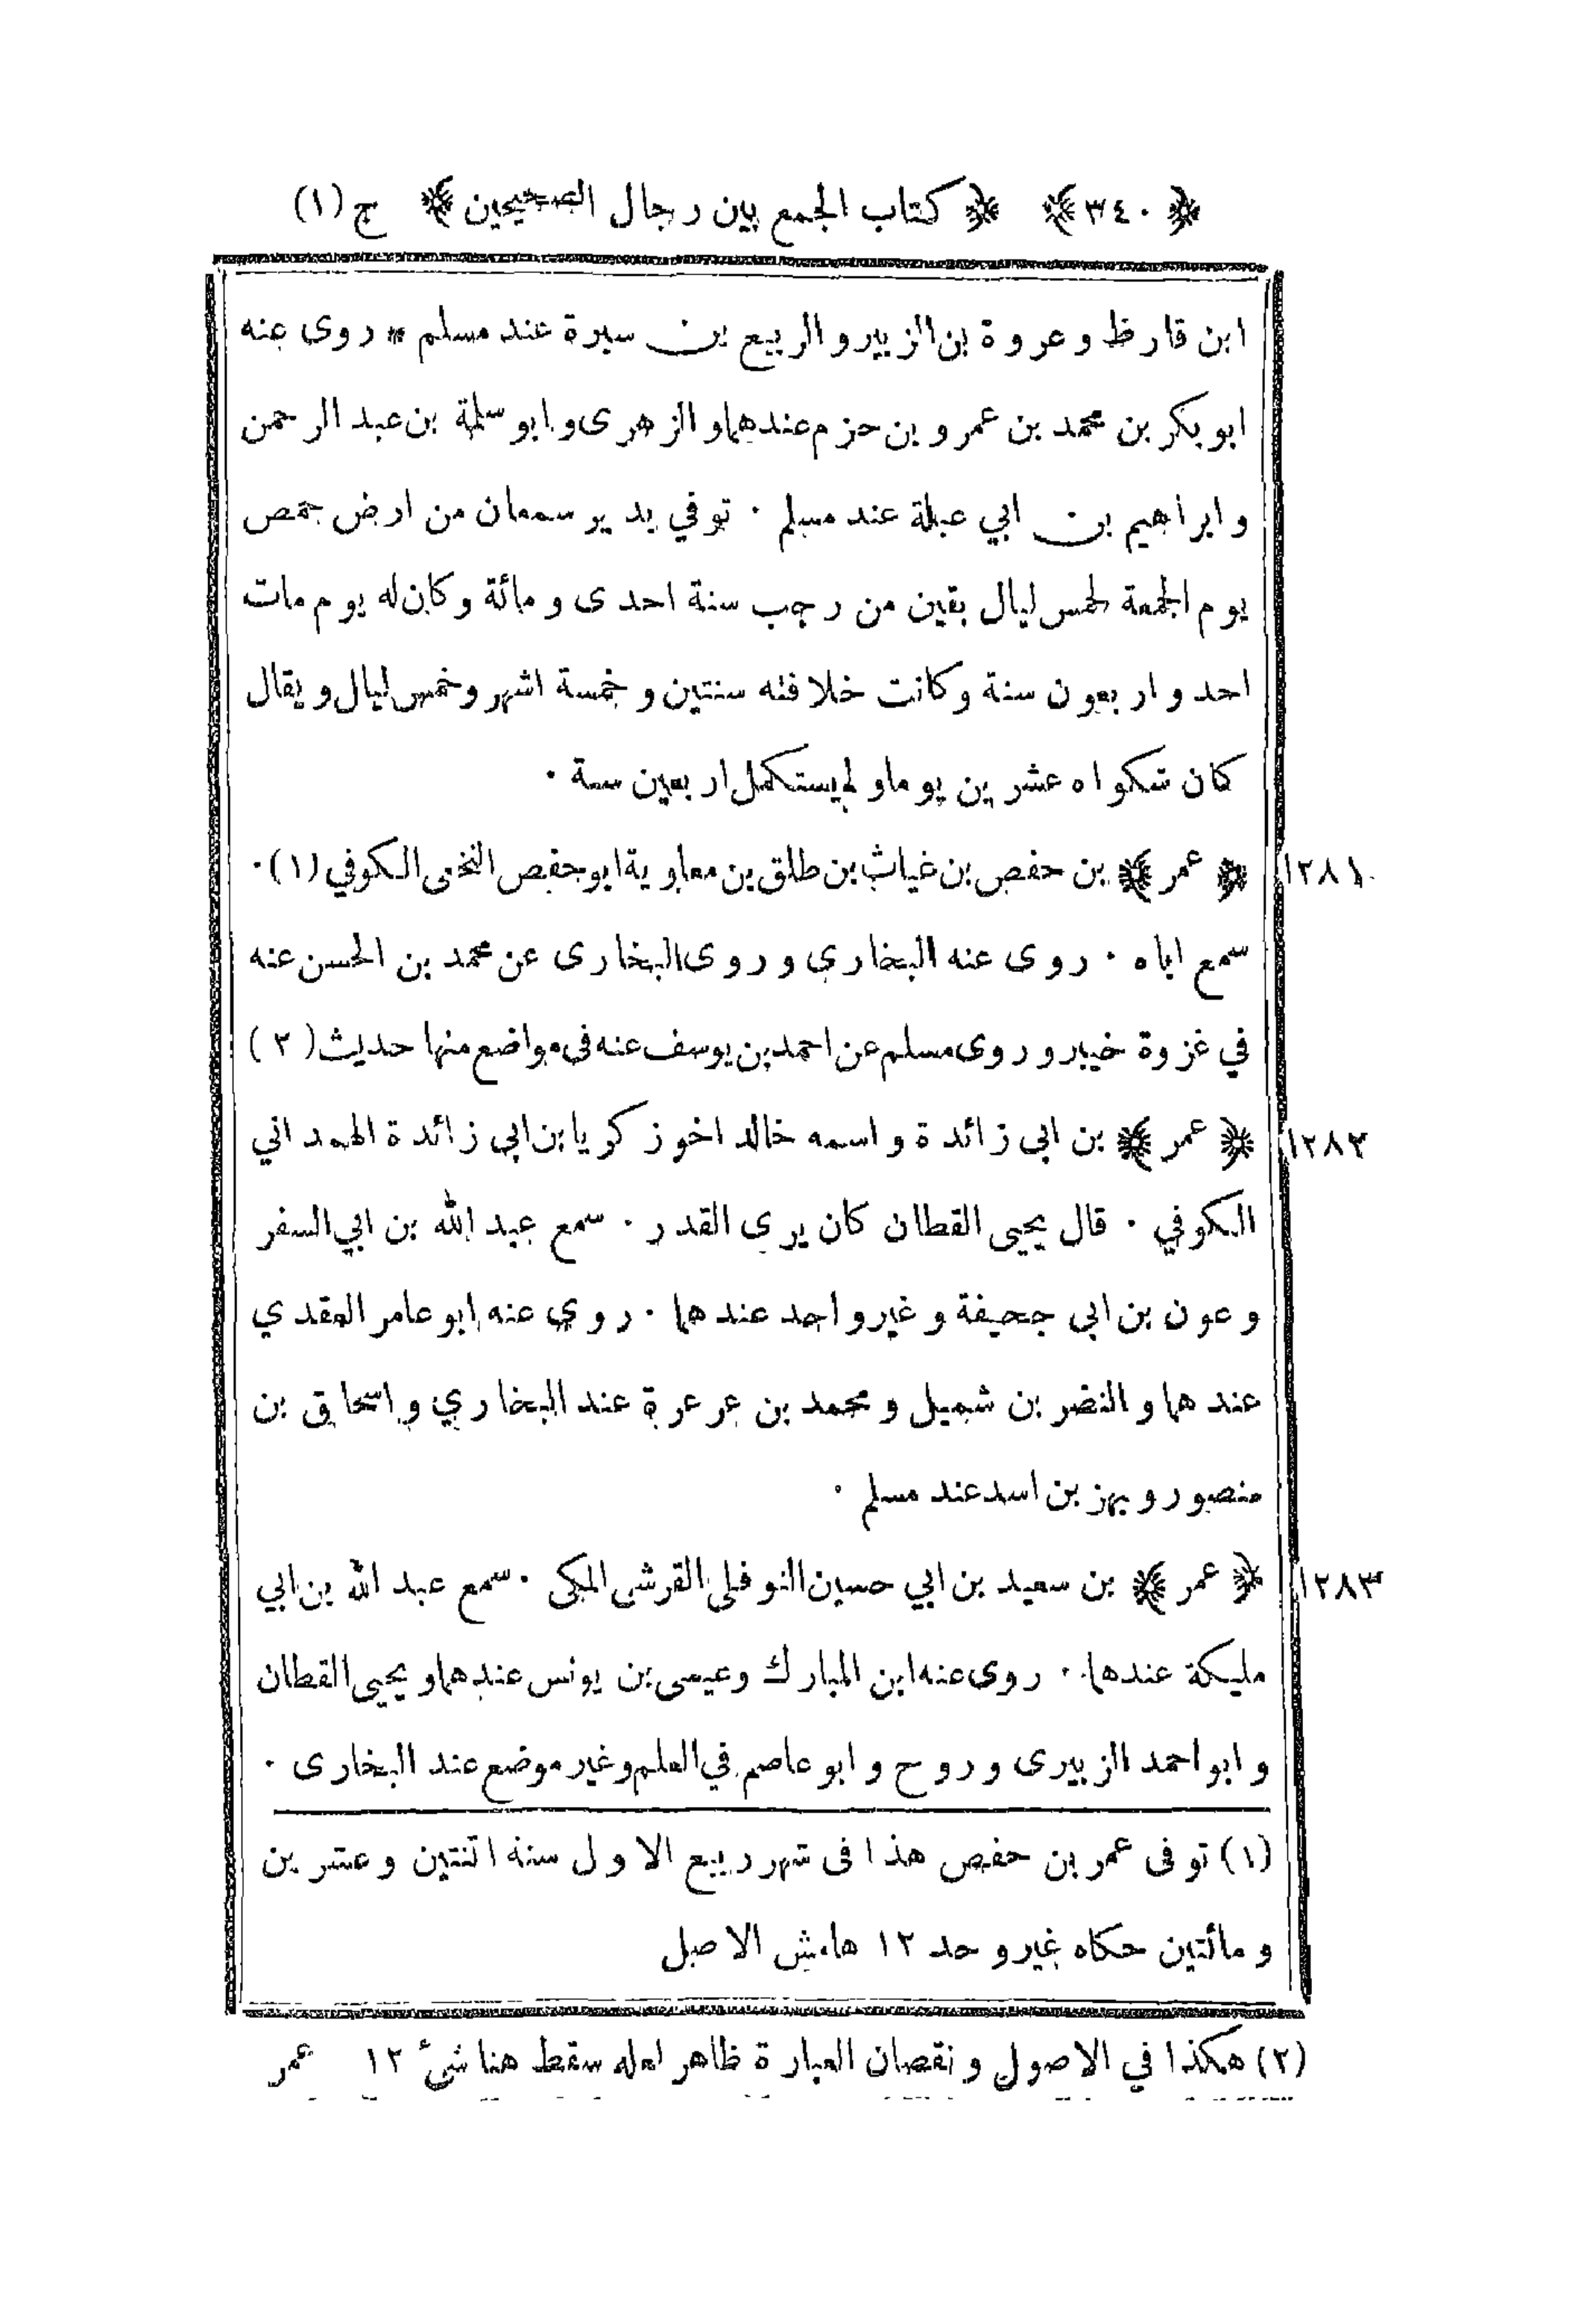 ﴿ ٣٤٠ ﴾ ﴿ كتاب الجمع بين رجال الصحيحين ﴾ ج (١)
ابن قارظ وعروة بن الزبير والربيع بن سبرة عند مسلم * روى عنه
ابوبكر بن محمد بن عمرو بن حزم عندهما والزهرى وابو سلمة بن عبد الرحمن
وابراهيم بن ابي عبلة عند مسلم ٠ توفي بدير سمعان من ارض حمص
يوم الجمعة لخمس ليال بقين من رجب سنة احدى ومائة وكان له يوم مات
احد واربعون سنة وكانت خلافته سنتين وخمسة اشهر وخمس ليال ويقال
كان شكواه عشرين يوما ولم يستكمل اربعين سنة ٠
١٢٨١ ﴿ عمر ﴾ بن حفص بن غياث بن طلق بن معاوية ابو حفص النخعى الكوفي (١) ٠
سمع اباه ٠ روى عنه البخاري وروى البخارى عن محمد بن الحسن عنه
في غزوة خيبر وروى مسلم عن احمد بن يوسف عنه فى مواضع منها حديث (٢)
١٢٨٢ ﴿ عمر ﴾ بن ابى زائدة واسمه خالد اخو زكريا بن ابى زائدة الهمداني
الكوفي ٠ قال يحيى القطان كان يرى القدر ٠ سمع عبد الله بن ابي السفر
وعون بن ابى جحيفة وغير واحد عندهما ٠ روي عنه ابو عامر العقدي
عندهما والنضر بن شميل ومحمد بن عرعرة عند البخاري واسحاق بن
منصور وبهز بن اسد عند مسلم ٠
١٢٨٣ ﴿ عمر ﴾ بن سعيد بن ابي حسين النوفلى القرشى المكى ٠ سمع عبد الله بن ابي
مليكة عندهما ٠ روى عنه ابن المبارك وعيسى بن يونس عندهما ويحيى القطان
وابو احمد الزبيرى وروح وابو عاصم في العلم وغير موضع عند البخارى ٠
(١) توفى عمر بن حفص هذا فى شهر ربيع الاول سنة اثنتين وعشرين
ومائتين حكاه غير وحد ١٢ هامش الاصل
(٢) هكذا في الاصول ونقصان العبارة ظاهر لعله سقط هنا شىٔ ١٢ عمر